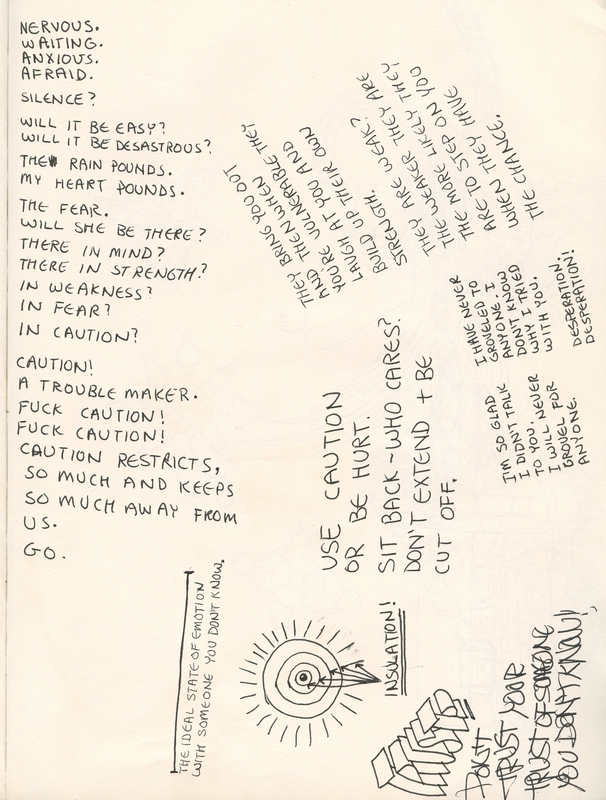 NERVOUS.
WAITING.
ANXIOUS.
AFRAID.
SILENCE?
WILL IT BE EASY?
WILL IT BE DESASTROUS?
THE RAIN POUNDS.
MY HEART POUNDS.
THE FEAR.
WILL SHE BE THERE?
THERE IN MIND?
THERE IN STRENGTH?
IN WEAKNESS?
IN FEAR?
IN CAUTION?
CAUTION!
A TROUBLE MAKER.
FUCK CAUTION!
FUCK CAUTION!
CAUTION RESTRICTS,
SO MUCH AND KEEPS
SO MUCH AWAY FROM
US.
GO.
THEY BRING YOU OUT
AND THEN WHEN
YOU'RE VULNERABLE THEY
LAUGH AT YOU AND
BUILD UP THEIR OWN
STRENGTH.
THEY ARE WEAK?
THE WEAKER THEY ARE
THE MORE LIKELY THEY
ARE TO STEP ON YOU
WHEN THEY HAVE
THE CHANCE.
I HAVE NEVER
GROVELED TO
ANYONE. I
DON'T KNOW
WHY I TRIED
WITH YOU.
DESPERATION!
DESPERATION!
I'M SO GLAD
I DIDN'T TALK
TO YOU. NEVER
I WILL FOR
GROVEL
ANYONE.
USE CAUTION
OR BE HURT.
SIT BACK - WHO CARES?
DON'T EXTEND + BE
CUT OFF.
THE IDEAL STATE OF EMOTION
WITH SOMEONE YOU DON'T KNOW.
INSULATION!
DON'T
TRUST YOUR
TRUST OF SOMEONE
YOU DON'T KNOW!